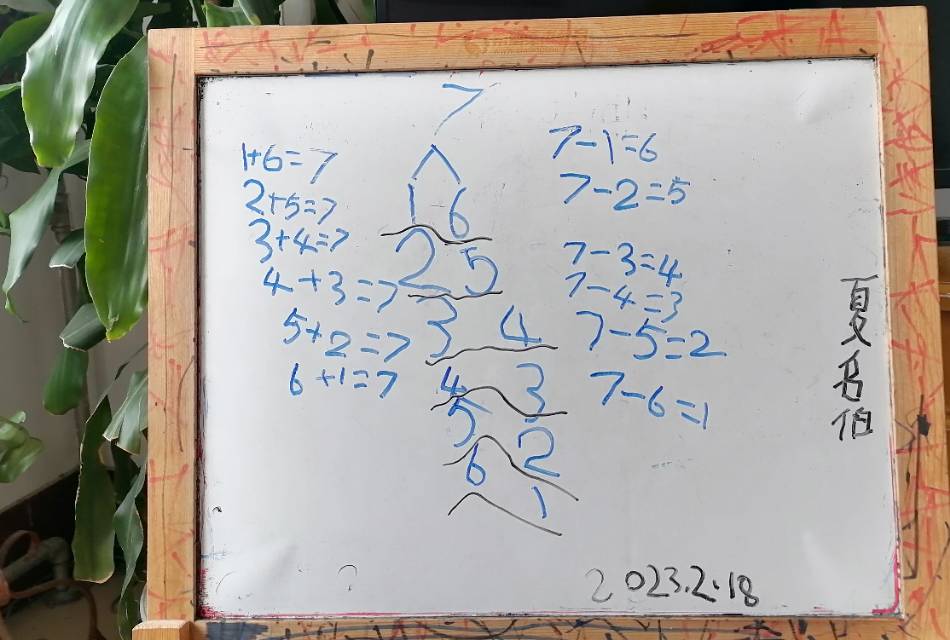 7
1+6=7
2+5=7
3+4=7
4+3=7
5+2=7
6+1=7
1 6
2 5
3 4
4 3
5 2
6 1
7-1=6
7-2=5
7-3=4
7-4=3
7-5=2
7-6=1
夏名伯
2023.2.18